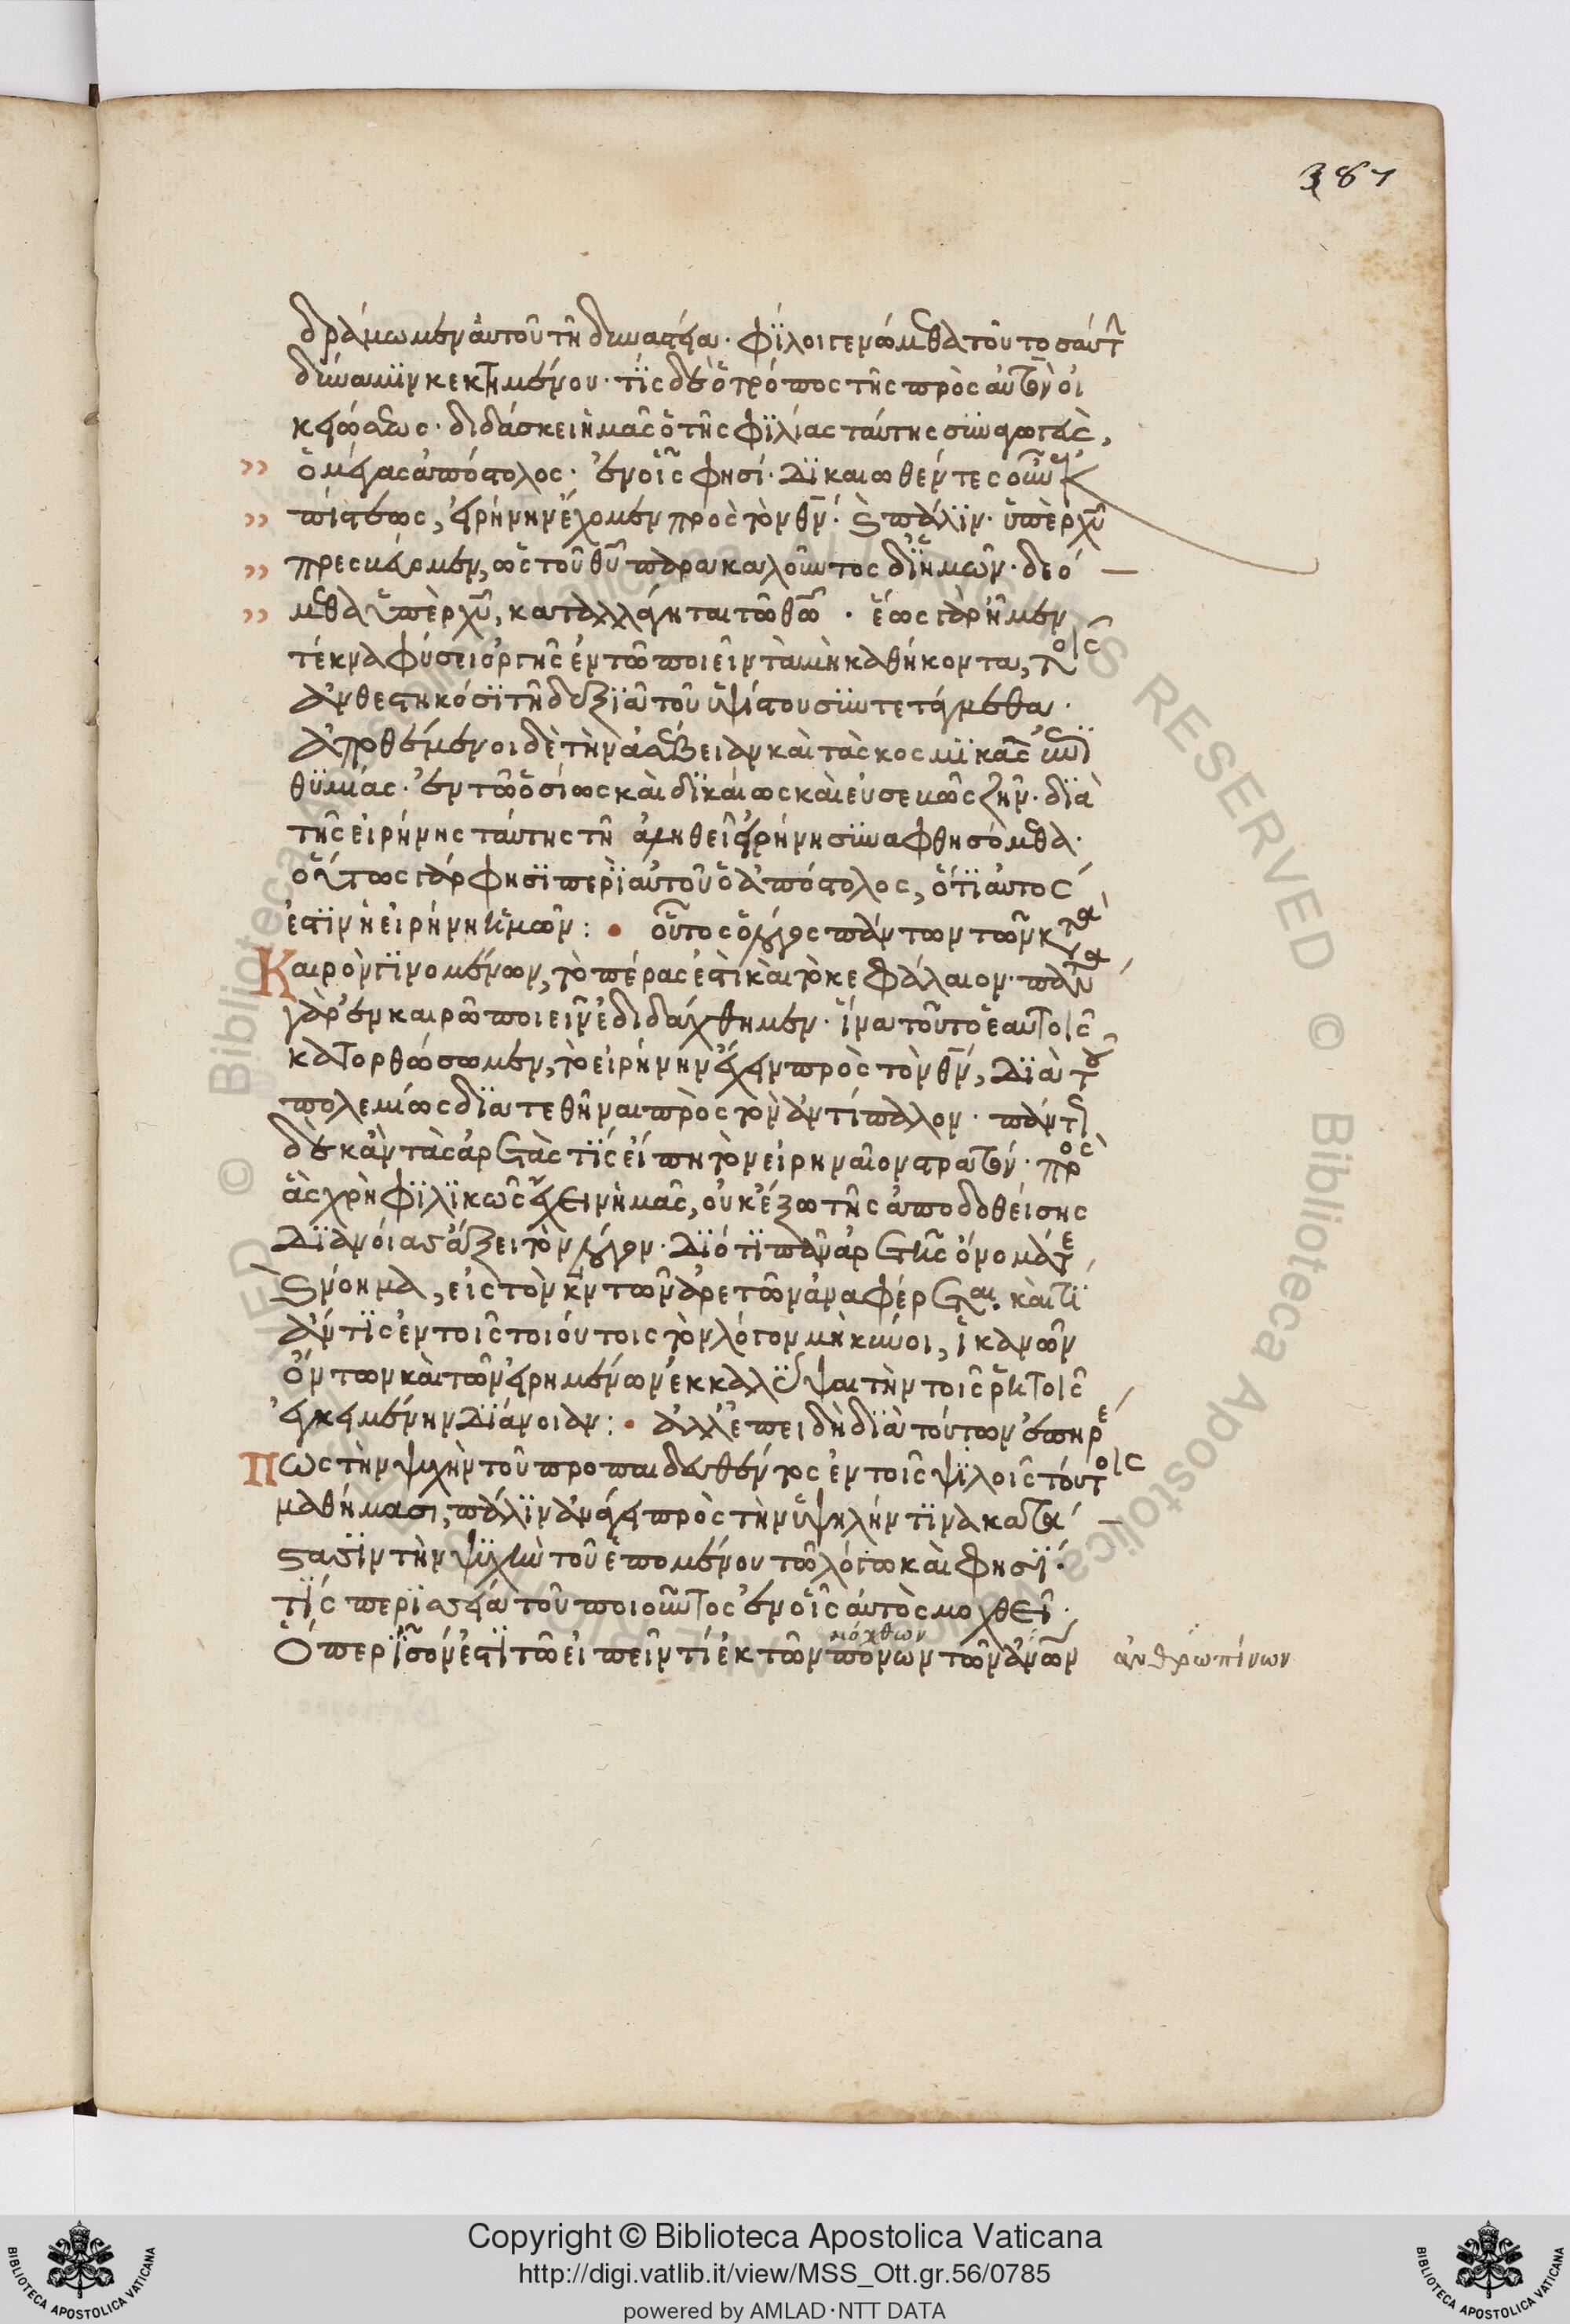 387
δράμωμεν αὐτοῦ τῆ δυναστεία· φίλοι γενώμεθα τοῦ τοσαύτ
δύναμιν κεκτημένου· τίς δὲ ὁ τρόπος τῆς πρὸς αὐτὸν οἰ
κειώσεως· διδάσκει ἡμᾶς ὁ τῆς φιλίας ταύτης συναγωγεὺς,
ὁ μέγας ἀπόστολος· ἐν οἷς φησί· Δικαιωθέντες οὖν ἐκ
πίστεως, εἰρήνην ἔχομεν πρὸς τὸν θν̄· καὶ πάλιν· ὑπὲρ χῦ
πρεσβεύομεν, ὡς τοῦ θῦ παρακαλοῦντος δι' ἡμῶν· δεό
μεθα ὑπὲρ χῦ, καταλλάγηται τῶ θῶ · ἕως γὰρ ἦμεν
τέκνα φύσει ὀργῆς ἐν τῶ ποιεῖν τὰ μὴ καθήκοντα, τοῖς
ἀνθεστηκόσι τῆ δεξιᾶ τοῦ ὑψίστου συντετάγμεθα·
Ἀποθέμενοι δὲ τὴν ἀσέβειαν καὶ τὰς κοσμικὰς ἐπι
θυμίας· ἐν τῶ ὁσίως καὶ δικαίως καὶ εὐσεβῶς ζῆν· διὰ
τῆς εἰρήνης ταύτης τῆ ἀληθεῖ εἰρήνη συναφθησόμεθα·
οὕτως γάρ φησι περὶ αὐτοῦ ὁ ἀπόστολος, ὅτι αὐτος
ἐστὶν ἡ εἰρήνη ἡμῶν : • οὗτος ὁ λόγος πάντων τῶν κατὰ
Καιρὸν γινομένων, τὸ πέρας ἐστὶ καὶ τὸ κεφάλαιον· πάντα
γὰρ ἐν καιρῶ ποιεῖν ἐδιδάχθημεν· ἵνα τοῦτο ἑαυτοῖς
κατορθώσωμεν, τὸ εἰρήνην ἔχειν πρὸς τὸν θν̄, Διὰ τοῦ
πολεμίως διατεθῆναι πρὸς τὸν ἀντίπαλον· παντὶ
δὲ κἂν τὰς ἀρετάς τίς εἴπη τὸν εἰρηναῖον στρατόν· πρὸς
ἃς χρὴ φιλικῶς ἔχειν ἡμᾶς, οὐκ ἔξω τῆς ἀποδοθείσης
Διανοίας ἄξει τὸν λόγον· Διότι πᾶν ἀρετῆς ὄνομά τε
καὶ νόημα, εἰς τὸν κν̄ τῶν ἀρετῶν ἀναφέρεται· καὶ τί
ἄν τις ἐν τοῖς τοιούτοις τὸν λόγον μηκύνοι, ἱκανῶν
ὄντων καὶ τῶν εἰρημένων ἐκκαλύψαι τὴν τοῖς ῥητοῖς
ἐγκειμένην Διάνοιαν : • ἀλλ' ἐπειδὴ διὰ τούτων ἐπῆρε
Πως τὴν ψυχὴν τοῦ προπαιδευθέντος ἐν τοῖς ψιλοῖς τούτοις
μαθήμασι, πάλιν ἀνάγει πρὸς τὴν ὑψηλήν τινα κατά
στασιν τὴν ψυχὴν τοῦ ἑπομένου τῶ λόγω καὶ φησί·
τίς περισσεία τοῦ ποιοῦντος ἐν οἷς αὐτὸς μοχθεῖ·
μόχθων
Ὅπερ ἶσόν ἐστι τῶ εἰπεῖν τί ἐκ τῶν πόνων τῶν ἀνων ἀνθρωπίνων
Copyright © Biblioteca Apostolica Vaticana
http://digi.vatlib.it/view/MSS_Ott.gr.56/0785
powered by AMLAD·NTT DATA